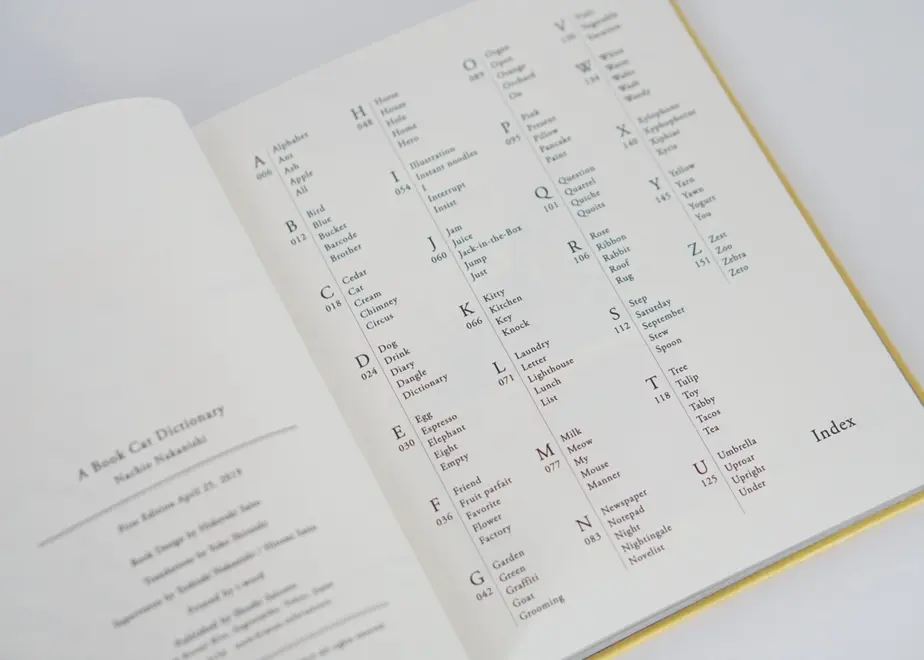 A Book Cat Dictionary
Nachio Nakanishi
First Edition April 25, 2019
A
006
Alphabet
Ant
Ash
Apple
All
B
012
Bird
Blue
Bucket
Barcode
Brother
C
018
Cedar
Cat
Cream
Chimney
Circus
D
024
Dog
Drink
Diary
Dangle
Dictionary
E
030
Egg
Espresso
Elephant
Eight
Empty
F
036
Friend
Fruit parfait
Favorite
Flower
Factory
G
042
Garden
Green
Graffiti
Goat
Grooming
H
048
Horse
House
Hole
Home
Hero
I
054
Illustration
Instant noodles
I
Interrupt
Insist
J
060
Jam
Juice
Jack-in-the-Box
Jump
Just
K
066
Kitty
Kitchen
Key
Knock
L
071
Laundry
Letter
Lighthouse
Lunch
List
M
077
Milk
Meow
My
Mouse
Manner
N
083
Newspaper
Notepad
Night
Nightingale
Novelist
O
089
Organ
Open
Orange
Orchard
On
P
095
Pink
Present
Pillow
Pancake
Paint
Q
101
Question
Quartet
Quiche
Quoits
R
106
Rose
Ribbon
Rabbit
Roof
Rug
S
112
Step
Saturday
September
Stew
Spoon
T
118
Tree
Tulip
Toy
Tabby
Tacos
Tea
U
125
Umbrella
Uproar
Upright
Under
V
Vegetable
Vacation
W
134
White
Water
Waltz
Wash
X
140
Xylophone
Xiphias
Xyris
Y
145
Yellow
Yarn
Yawn
Yogurt
You
Z
151
Zest
Zoo
Zebra
Zero
Index